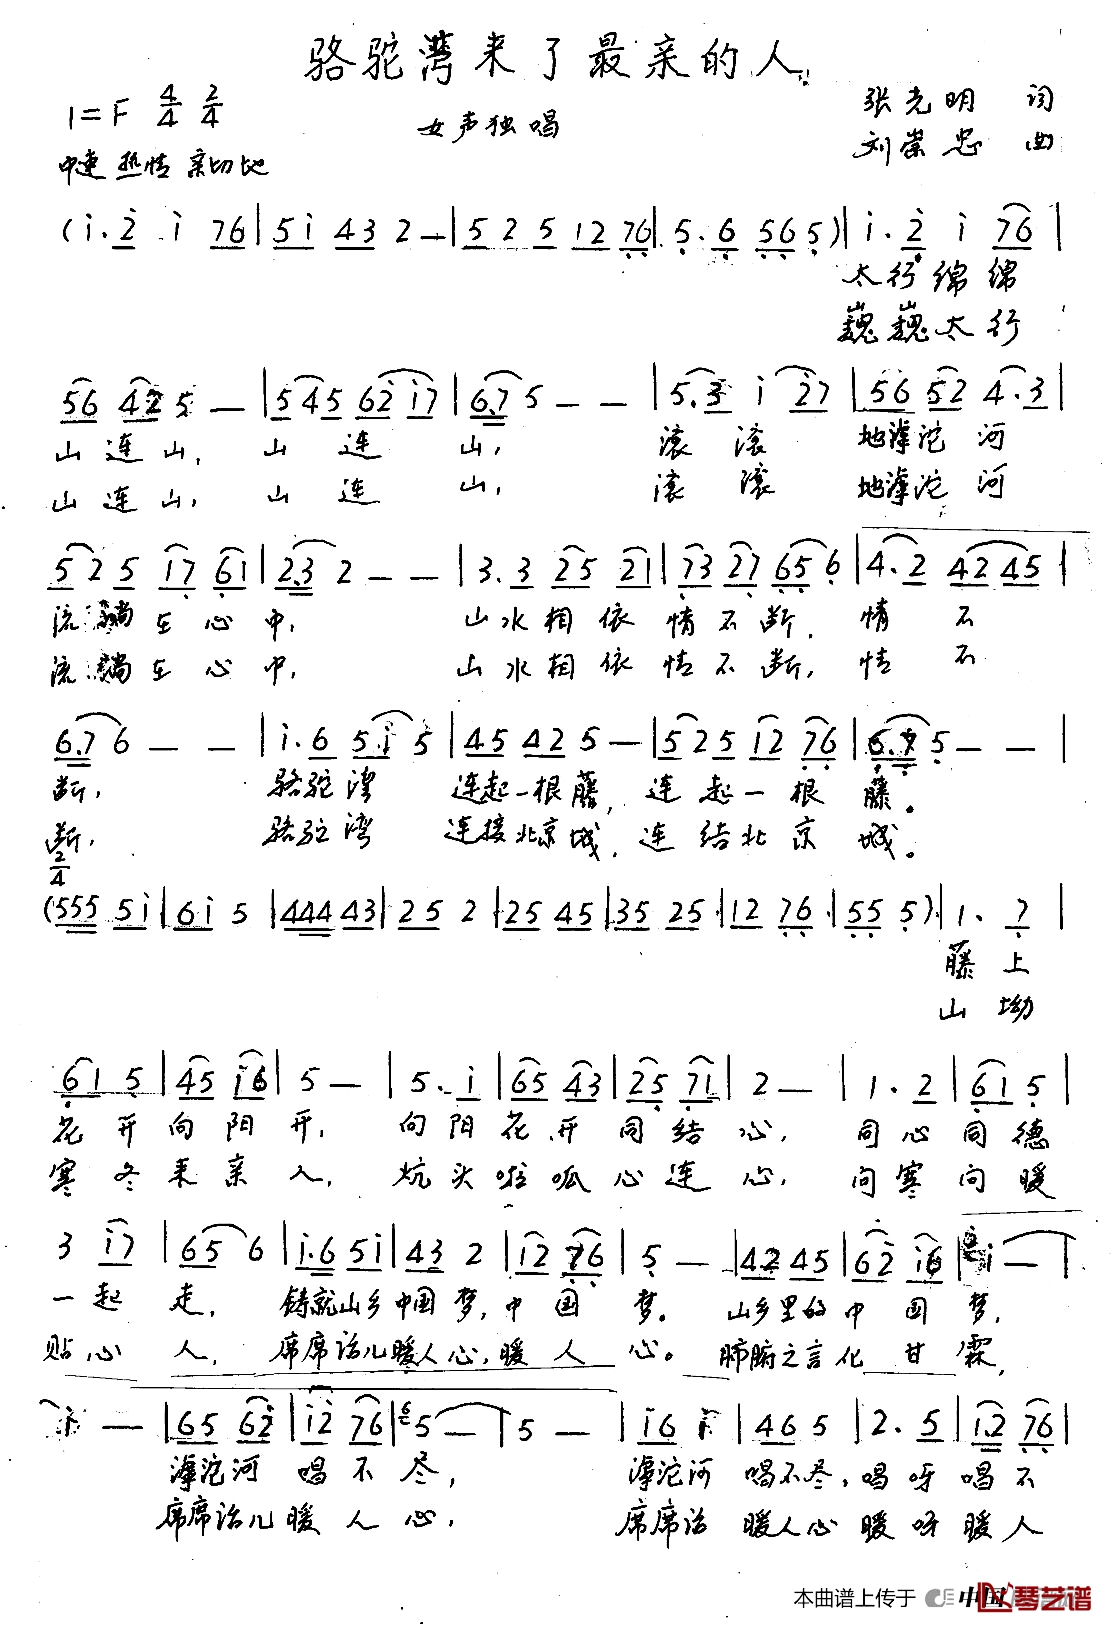 骆驼湾来了最亲的人
1=F 4/4 2/4
女声独唱
张光明 词
刘崇忠 曲
中速 热情 亲切地
(i. 2 i 76 | 5i 43 2 — | 5 2 5 12 76 | 5. 6 56 5) | i. 2 i 76 |
太行绵绵
巍巍太行
56 42 5 — | 545 62 i7 | 6.7 5 — — | 5.3 i 27 | 56 52 4.3 |
山连山, 山连山, 滚滚地滹沱河
山连山, 山连山, 滚滚地滹沱河
5 2 5 i7 6i | 2.3 2 — — | 3.3 25 21 | 73 27 65 6 | 4.2 42 45 |
流淌在心中, 山水相依情不断, 情不
流淌在心中, 山水相依情不断, 情不
6.7 6 — — | i.6 5.i 5 | 45 42 5 — | 525 12 76 | 6.7 5 — — |
断, 骆驼湾 连起一根藤, 连起一根藤。
断, 骆驼湾 连接北京城, 连结北京城。
2/4
(555 5i | 6i 5 | 444 43 | 25 2 | 25 45 | 35 25 | 12 76 | 55 5) | 1. 7 |
藤上
山坳
61 5 | 45 i6 | 5 — | 5. i | 65 43 | 25 71 | 2 — | 1. 2 | 61 5 |
花开向阳开, 向阳花开同结心, 同心同德
寒冬来亲人, 炕头啦呱心连心, 问寒问暖
3 i7 | 65 6 | i.6 5i | 43 2 | 12 76 | 5 — | 42 45 | 62 i6 | i — |
一起走, 铸就山乡中国梦, 中国梦。 山乡里的中国梦,
贴心人, 席席话儿暖人心, 暖人心。 肺腑之言化甘霖,
i — | 65 62 | i2 76 | 5 — | 5 — | i6 i | 46 5 | 2. 5 | 12 76 |
滹沱河唱不尽, 滹沱河唱不尽, 唱呀唱不
席席话儿暖人心, 席席话暖人心暖呀暖人
本曲谱上传于 中国
琴艺谱